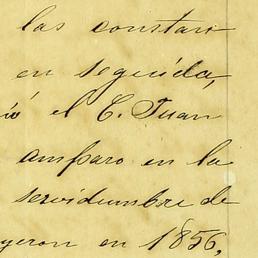 las constan
en seguida,
ió el C. Juan
amparo en la
servidumbre de
yeron en 1856,